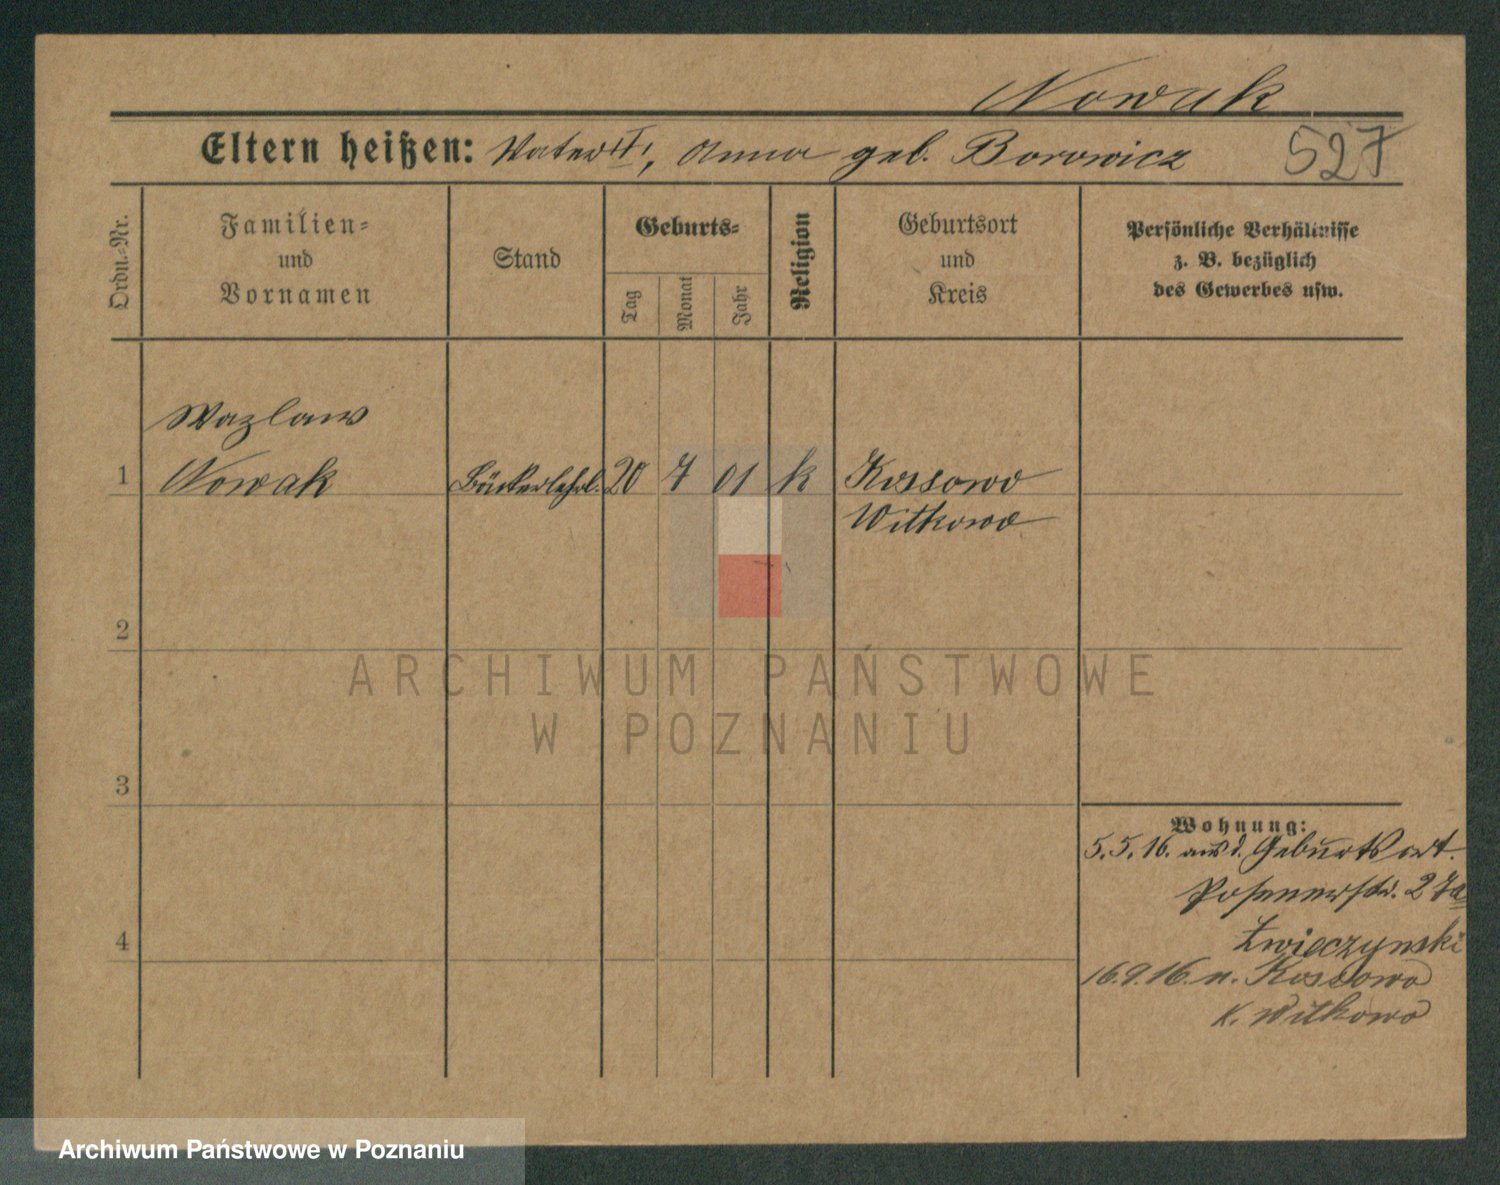 Nowak
Eltern heißen: Vater †, Anna geb. Borowicz
527
Ordn.-Nr.
Familien-
und
Vornamen
Stand
Geburts-
Tag
Monat
Jahr
Religion
Geburtsort
und
Kreis
Persönliche Verhältnisse
z. B. bezüglich
des Gewerbes usw.
Wazlaw
1 Nowak Bäckerlehrl. 20 7 01 k Kossowo
Witkowo
2
ARCHIWUM PAŃSTWOWE
W POZNANIU
3
Wohnung:
5.5.16. aus d. Geburtsort.
Posenerstr. 27a
4
Zwieczynski
16.9.16. n. Kossowo
K. Witkowo
Archiwum Państwowe w Poznaniu